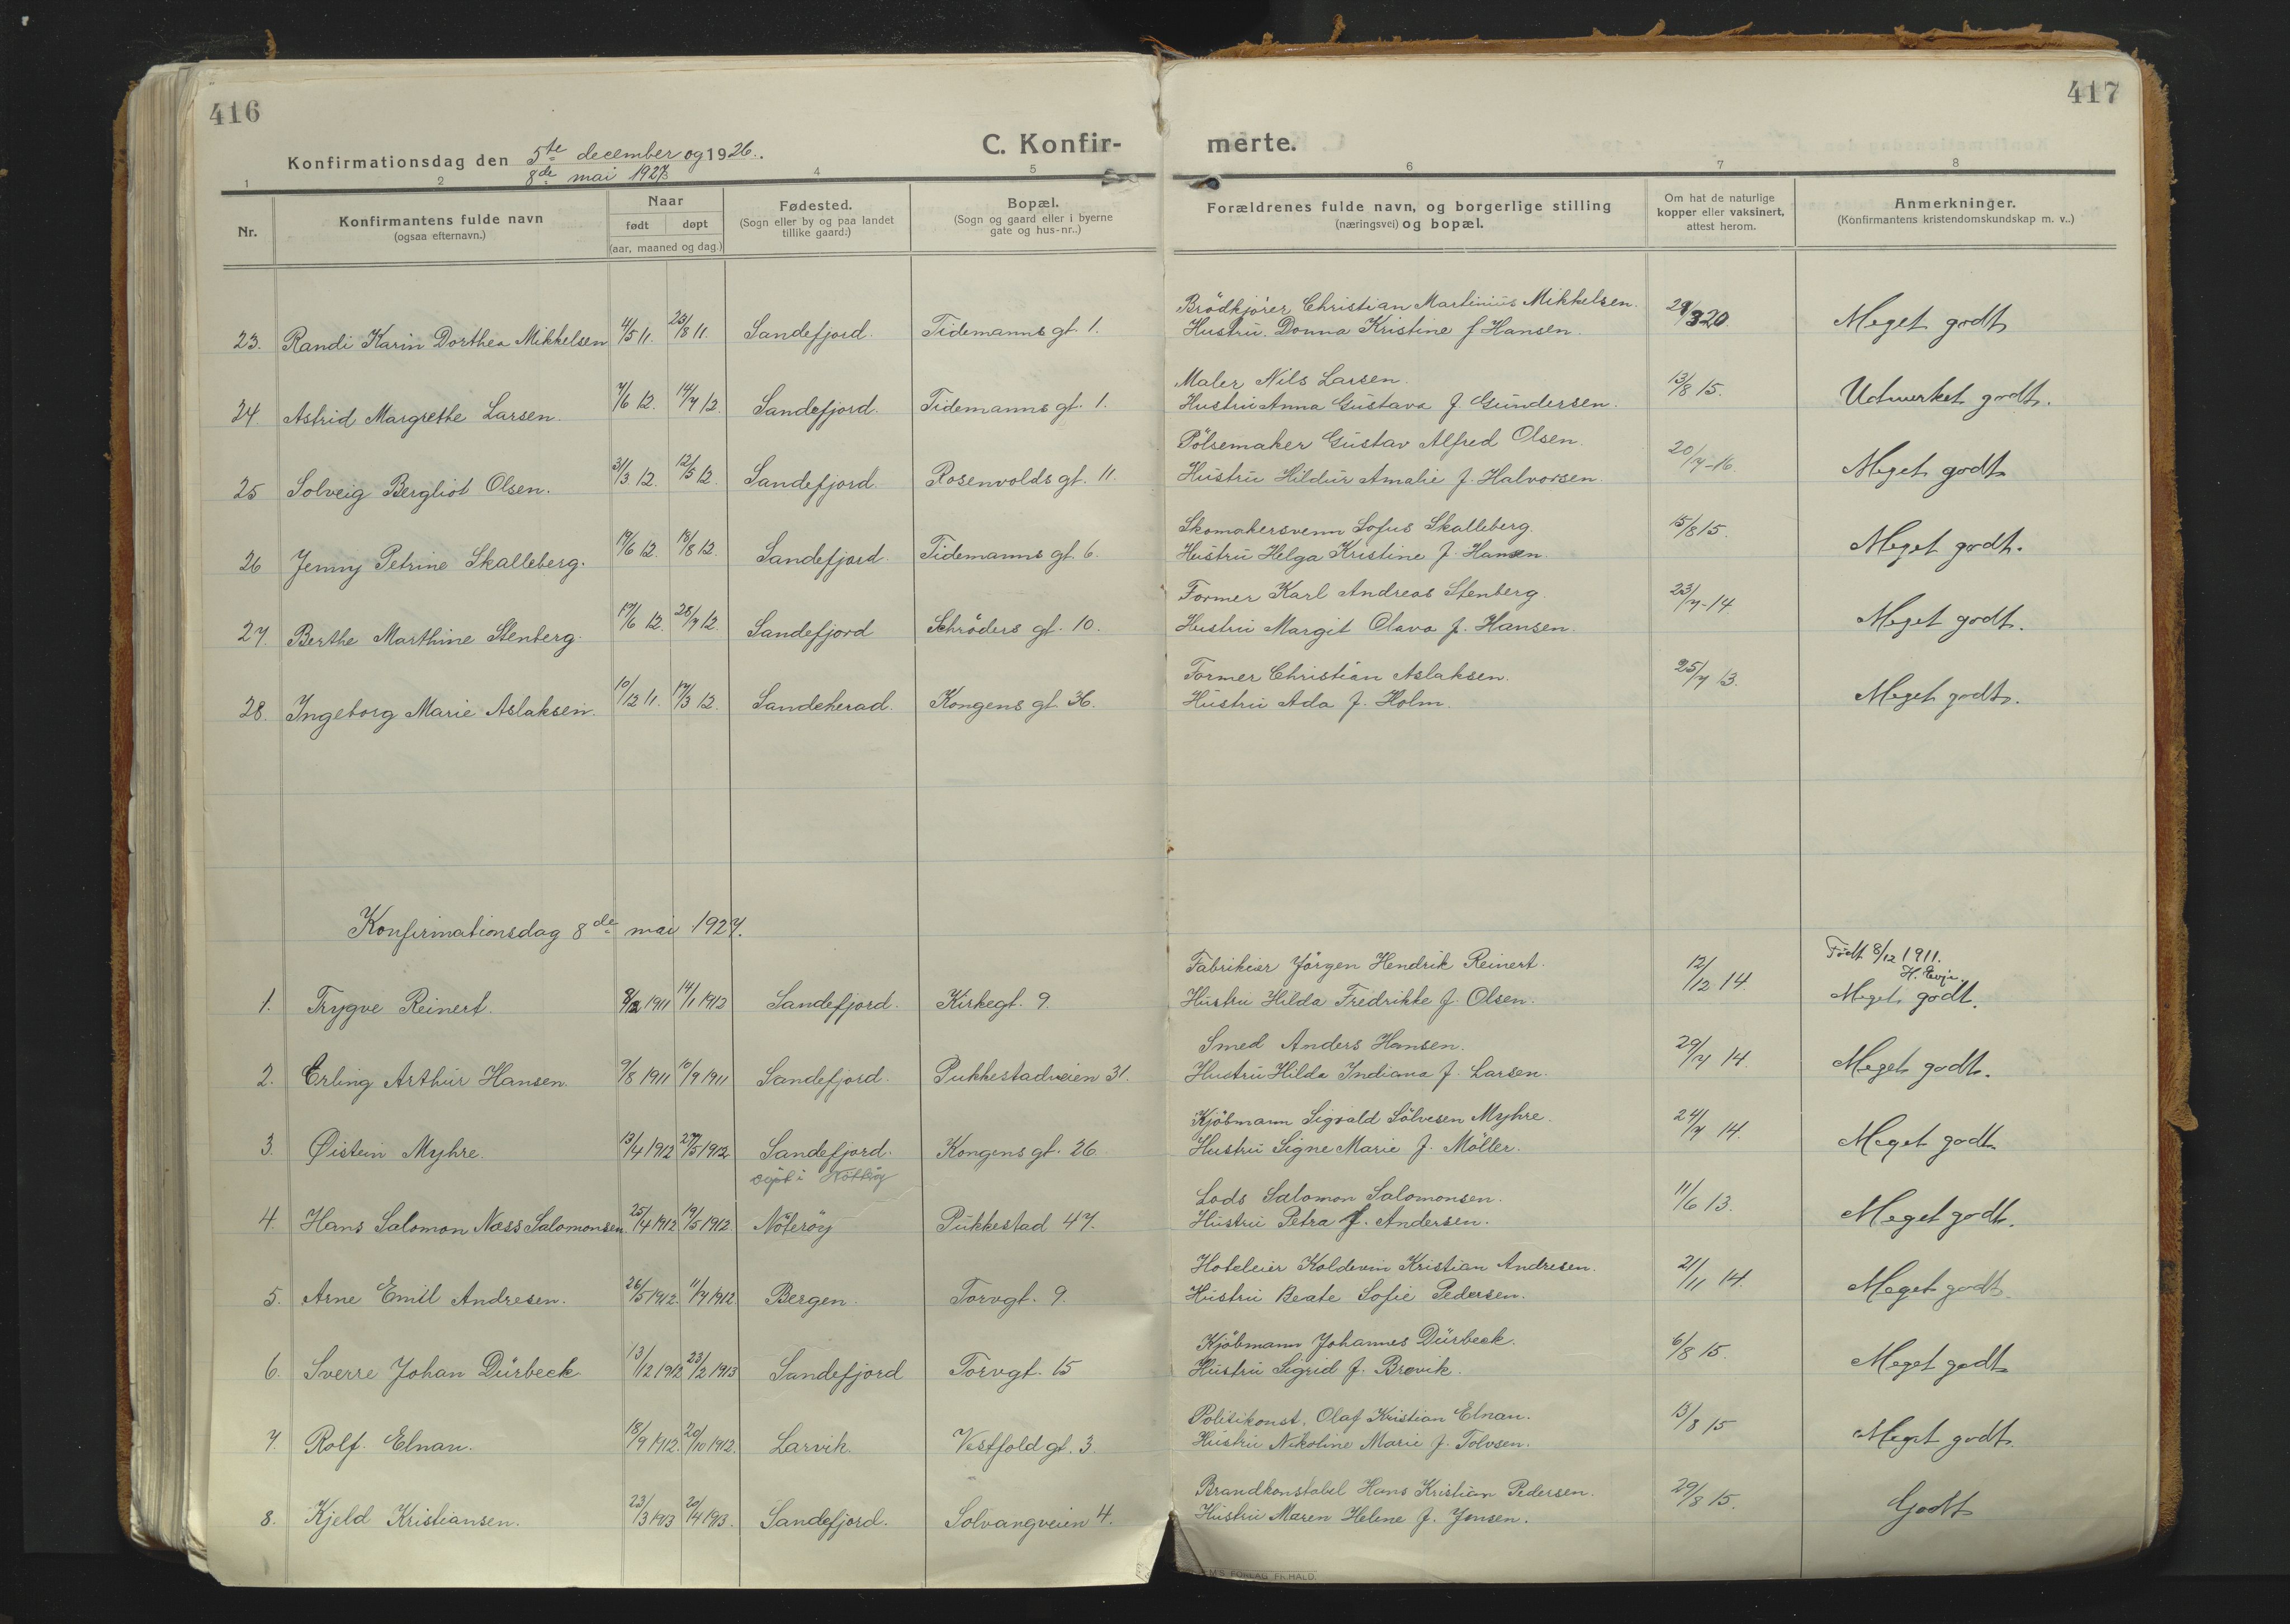 416
417
Konfirmationsdag den 5te december og 1926.
8de mai 1927
C. Konfir-
merte.
1 2 4 5 6 7 8
Nr.
Konfirmantens fulde navn
(ogsaa efternavn.)
Naar
født døpt
(aar, maaned og dag.)
Fødested.
(Sogn eller by og paa landet
tillike gaard.)
Bopæl.
(Sogn og gaard eller i byerne
gate og hus-nr..)
Forældrenes fulde navn, og borgerlige stilling
(næringsvei) og bopæl.
Om hat de naturlige
kopper eller vaksinert,
attest herom.
Anmerkninger.
(Konfirmantens kristendomskundskap m. v..)
Brödkjörer Christian Martinius Mikkelsen.
23. Randi Karin Dorthea Mikkelsen 4/5 11. 23/8 11. Sandefjord. Tidemanns gt. 1. Hustru. Donna Kristine f Hansen. 29/3 20. Meget godt
Maler Nils Larsen.
24. Astrid Margrethe Larsen. 7/6 12. 14/7 12. Sandefjord. Tidemanns gt. 1. Hustru Anna Gustava f. Gundersen. 13/8 15. Udmerket godt.
Pölsemaker Gustav Alfred Olsen.
25 Solveig Bergliot Olsen. 31/3 12. 12/5 12. Sandefjord. Rosenvolds gt. 11. Hustru Hildur Amalie f. Halvorsen. 20/7-16. Meget godt
Skomakersvenn Sofus Skalleberg.
26 Jenny Petrine Skalleberg. 19/6 12. 18/8 12. Sandefjord. Tidemanns gt. 6. Hustru Helga Kristine f. Hansen. 15/8 15. Meget godt.
Former Karl Andreas Stenberg.
27. Berthe Marthine Stenberg. 17/6 12. 28/7 12. Sandefjord Schröders gt. 10. Hustru Margit Olava f. Hansen. 23/7-14 Meget godt.
Former Christian Aslaksen.
28. Ingeborg Marie Aslaksen. 10/12 11. 17/3 12. Sandeherad. Kongens gt. 36. Hustru Ada f. Holm. 25/7 13. Meget godt.
Konfirmationsdag 8de mai 1927.
Fabrikeier Jörgen Hendrik Reinert. Født 8/12 1911.
H.
1. Trygve Reinert. 8/12 1911 14/1 1912 Sandefjord. Kirkegt. 9. Hustru Hilda Fredrikke f. Olsen. 12/12 14. Meget godt.
Smed Anders Hansen.
2. Erling Arthur Hansen. 9/8 1911 10/9 1911 Sandefjord. Pukkestadveien 31. Hustru Hilda Indiana f. Larsen. 29/7 14. Meget godt.
Kjöbmann Sigvald Sölvesen Myhre.
3. Øistein Myhre. 13/4 1912 27/5 1912 Sandefjord. Kongens gt. 26. Hustru Signe Marie f. Möller. 24/7 14. Meget godt
Lods Salomon Salomonsen.
4. Hans Salomon Næss Salomonsen. 25/4 1912 19/5 1912 Nöteröy Pukkestad 47. Hustru Petra f. Andersen. 11/6 13. Meget godt.
Hoteleier Koldevin Kristian Andresen.
5. Arne Emil Andresen. 26/5 1912. 11/7 1912 Bergen. Torvgt. 9. Hustru Beate Sofie Pedersen. 21/11 14. Meget godt
Kjöbmann Johannes Dürbeck.
6. Sverre Johan Dürbeck 13/12 1912 23/2 1913 Sandefjord Torvgt. 15 Hustru Sigrid f. Brevik. 6/8 15. Meget godt
Politikonst. Olaf Kristian Elnan.
7. Rolf Elnan. 18/9 1912. 20/10 1912. Larvik. Vestfold gt. 3. Hustru Nikoline Marie f. Tolvsen. 13/8 15 Meget godt
Brandkonstabel Hans Kristian Pedersen.
8. Kjeld Kristiansen. 23/3 1913 20/4 1913. Sandefjord. Solvangveien 4. Hustru Maren Helene f. Jensen. 29/8 15. Godt
FORLAG FR. HALD.